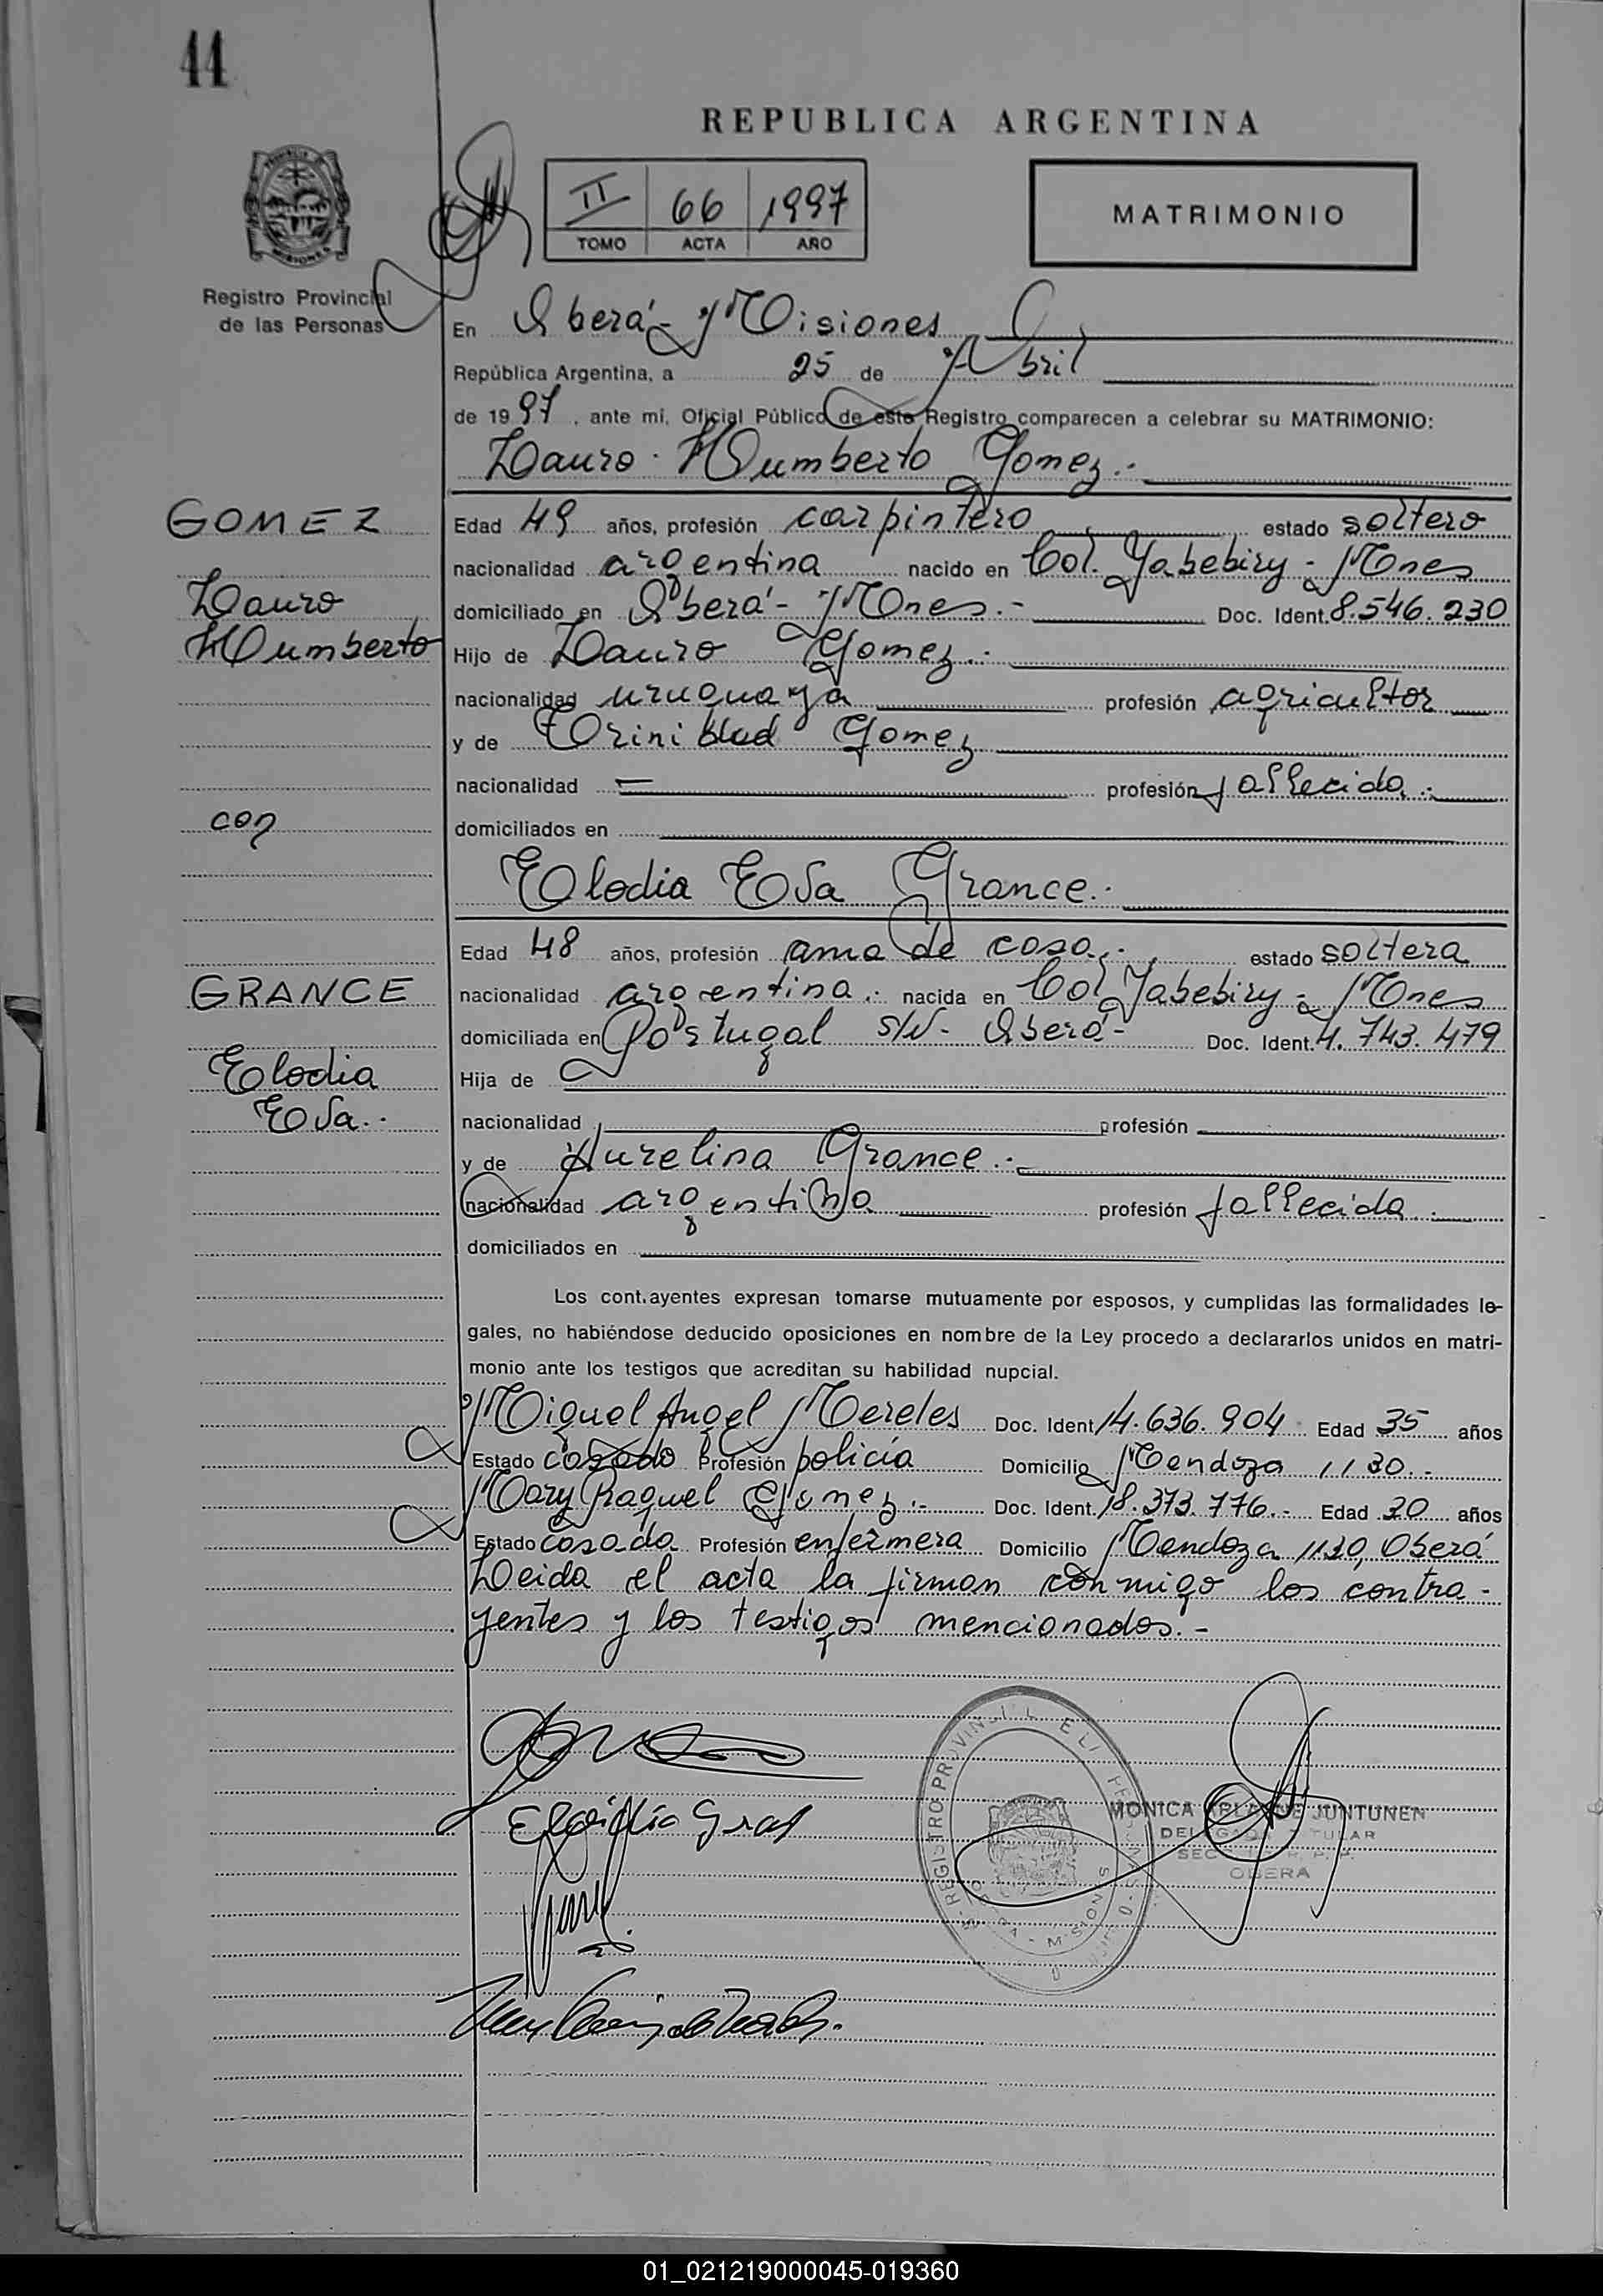 44
REPUBLICA ARGENTINA
II 66 1997
TOMO ACTA AÑO
MATRIMONIO
Registro Provincial
de las Personas
En Oberá - Misiones
República Argentina, a 25 de Abril
de 1997, ante mí, Oficial Público de este Registro comparecen a celebrar su MATRIMONIO:
Lauro Humberto Gomez.-
GOMEZ
Lauro
Humberto
con
GRANCE
Elodia
Eva.-
Edad 49 años, profesión carpintero estado soltero
nacionalidad argentina nacido en Col. Yabebiry - Mnes
domiciliado en Oberá - Mnes.- Doc. Ident. 8.546.230
Hijo de Lauro Gomez.-
nacionalidad uruguaya profesión agricultor
y de Trinidad Gomez
nacionalidad — profesión fallecida.-
domiciliados en
Elodia Eva Grance.-
Edad 48 años, profesión ama de casa.- estado soltera
nacionalidad argentina.- nacida en Col. Yabebiry - Mnes
domiciliada en Portugal s/N - Oberá - Doc. Ident. 4.743.479
Hija de
nacionalidad profesión
y de Aurelina Grance.-
nacionalidad argentina profesión fallecida.-
domiciliados en
Los cont.ayentes expresan tomarse mutuamente por esposos, y cumplidas las formalidades le-
gales, no habiéndose deducido oposiciones en nombre de la Ley procedo a declararlos unidos en matri-
monio ante los testigos que acreditan su habilidad nupcial.
Miguel Angel Mereles Doc. Ident 14.636.904 Edad 35 años
Estado casado Profesión policía Domicilio Mendoza 1130.-
Mary Raquel Gómez.- Doc. Ident. 18.373.776.- Edad 30 años
Estado casada Profesión enfermera Domicilio Mendoza 1130, Oberá
Leida el acta la firman conmigo los contra-
yentes y los testigos mencionados.-
MONICA ARLAINE JUNTUNEN
DELEGADA TITULAR
OBERA
01_021219000045-019360